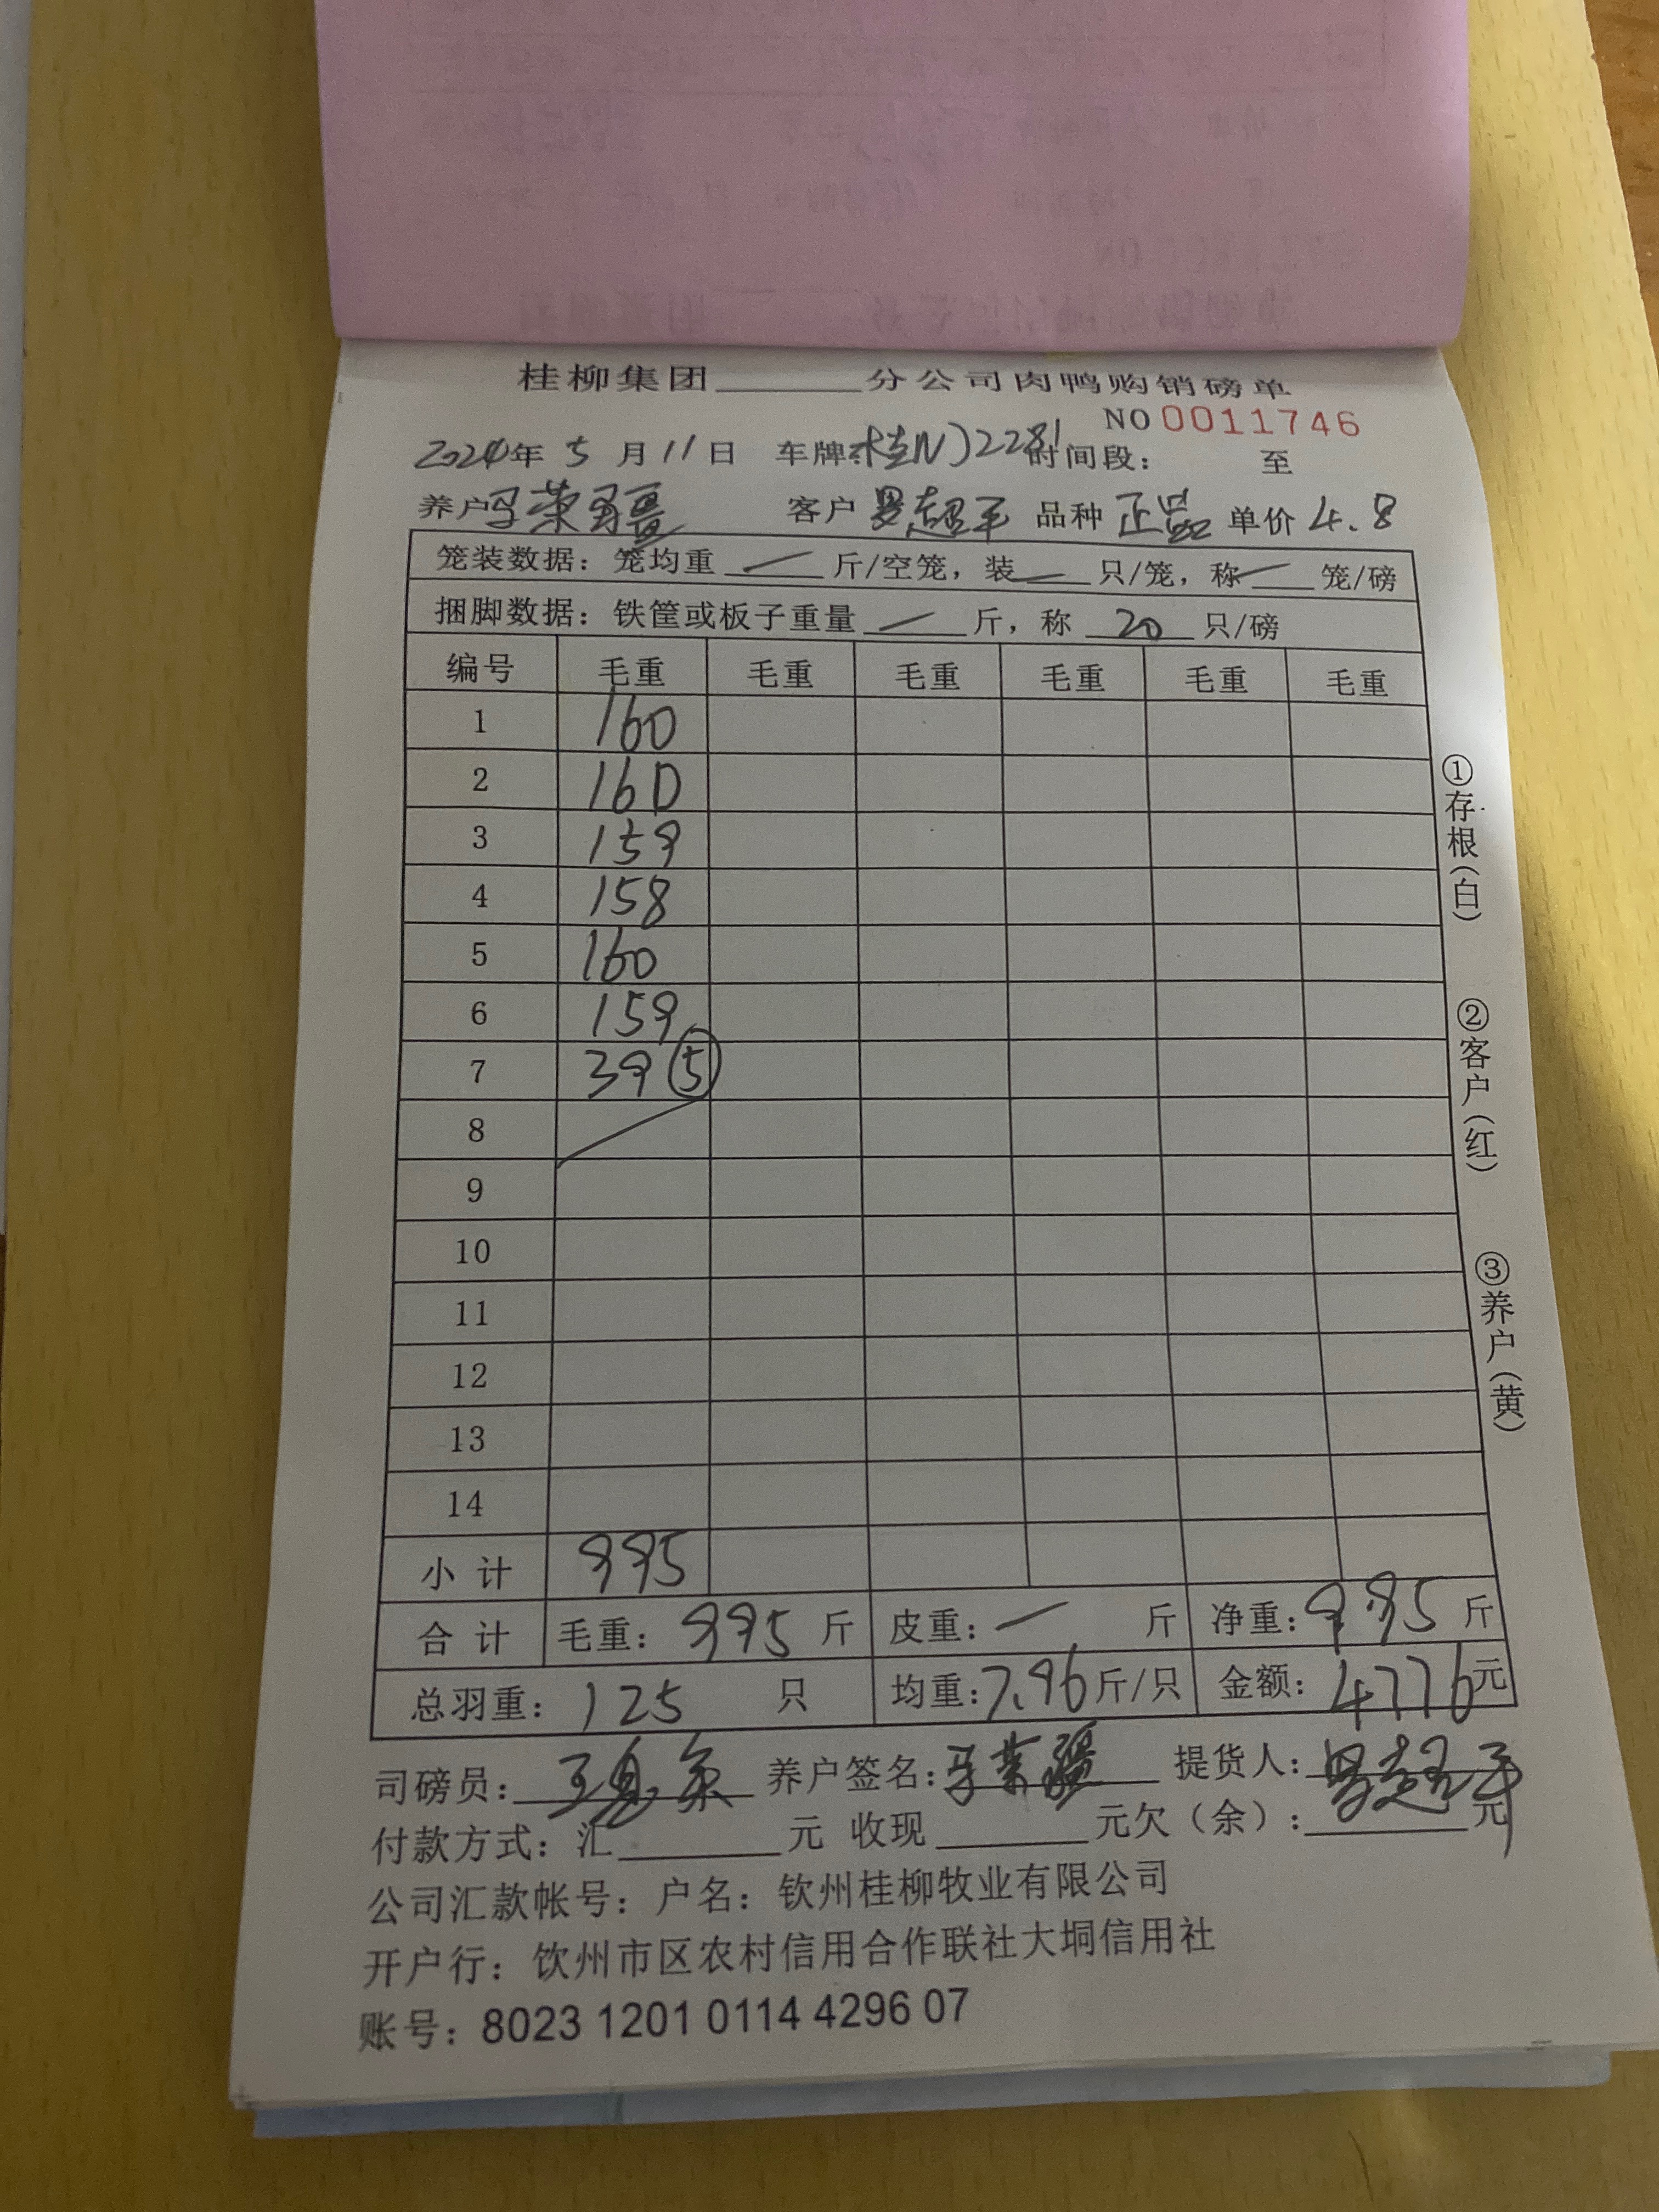 桂柳集团______分公司肉鸭购销磅单
NO 0011746
2024年 5 月 11 日 车牌:桂NJ2281 时间段: 至
养户 客户 罗超平 品种 正品 单价 4.8
笼装数据: 笼均重 — 斤/空笼, 装 — 只/笼, 称 — 笼/磅
捆脚数据: 铁筐或板子重量 — 斤, 称 20 只/磅
编号 毛重 毛重 毛重 毛重 毛重 毛重
1 160
2 160
3 159
4 158
5 160
6 159
7 39 ⑤
8
9
10
11
12
13
14
小计 995
合计 毛重: 995 斤 皮重: — 斤 净重: 995 斤
总羽重: 125 只 均重: 7.96 斤/只 金额: 4776元
司磅员: 养户签名: 提货人: 罗超平
付款方式: 汇______元 收现______元欠(余):______元
公司汇款帐号: 户名: 钦州桂柳牧业有限公司
开户行: 钦州市区农村信用合作联社大垌信用社
账号: 8023 1201 0114 4296 07
①存根(白)
②客户(红)
③养户(黄)